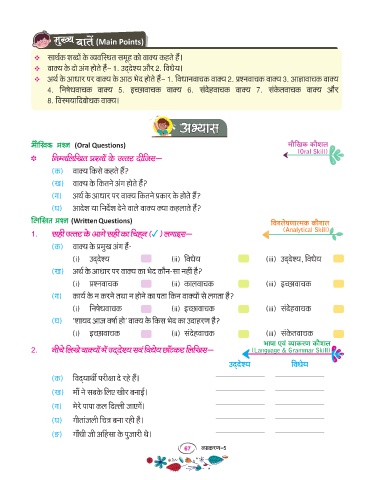 मुख्य बातें (Main Points)
❖ सार्थक शब्दों के व्यवस्थित समूह को वाक्य कहते हैं।
❖ वाक्य के दो अंग होते हैं– 1. उद्देश्य और 2. विधेय।
❖ अर्थ के आधार पर वाक्य के आठ भेद होते हैं– 1. विधानवाचक वाक्य 2. प्रश्नवाचक वाक्य 3. आज्ञावाचक वाक्य
4. निषेधवाचक वाक्य 5. इच्छावाचक वाक्य 6. संदेहवाचक वाक्य 7. संकेतवाचक वाक्य और
8. विस्मयादिबोधक वाक्य।
अभ्यास
मौखिक प्रश्न (Oral Questions)
मौखिक कौशल
(Oral Skill)
निम्नलिखित प्रश्नों के उत्तर दीजिए–
(क) वाक्य किसे कहते हैं?
(ख) वाक्य के कितने अंग होते हैं?
(ग) अर्थ के आधार पर वाक्य कितने प्रकार के होते हैं?
(घ) आदेश या निर्देश देने वाले वाक्य क्या कहलाते हैं?
लिखित प्रश्न (Written Questions)
विश्लेषणात्मक कौशल
(Analytical Skill)
1. सही उत्तर के आगे सही का चिह्न (✓) लगाइए–
(क) वाक्य के प्रमुख अंग हैं-
(i) उद्देश्य (ii) विधेय (iii) उद्देश्य, विधेय
(ख) अर्थ के आधार पर वाक्य का भेद कौन-सा नहीं है?
(i) प्रश्नवाचक (ii) कालवाचक (iii) इच्छावाचक
(ग) कार्य के न करने तथा न होने का पता किन वाक्यों से लगता है?
(i) निषेधवाचक (ii) इच्छावाचक (iii) संदेहवाचक
(घ) 'शायद आज वर्षा हो' वाक्य के किस भेद का उदाहरण है?
(i) इच्छावाचक (ii) संदेहवाचक (iii) संकेतवाचक
भाषा एवं व्याकरण कौशल
(Language & Grammar Skill)
2. नीचे लिखे वाक्यों में उद्देश्य एवं विधेय छाँटकर लिखिए–
उद्देश्य विधेय
(क) विद्यार्थी परीक्षा दे रहे हैं।
(ख) माँ ने सबके लिए खीर बनाई।
(ग) मेरे पापा कल दिल्ली जाएंगे।
(घ) गीतांजली चित्र बना रही है।
(ङ) गाँधी जी अहिंसा के पुजारी थे।
67 व्याकरण-5